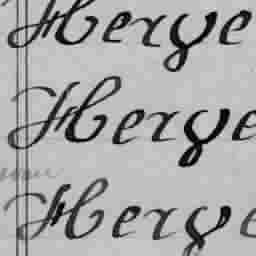 Herye
Herye
Herye